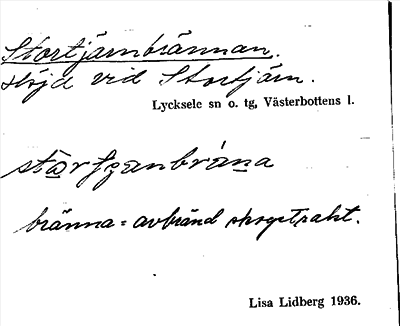 Stortjärnbrännan.
höjd vid Stortjärn.
Lycksele sn o. tg, Västerbottens l.
bränna = avbränd skogstrakt.
Lisa Lidberg 1936.